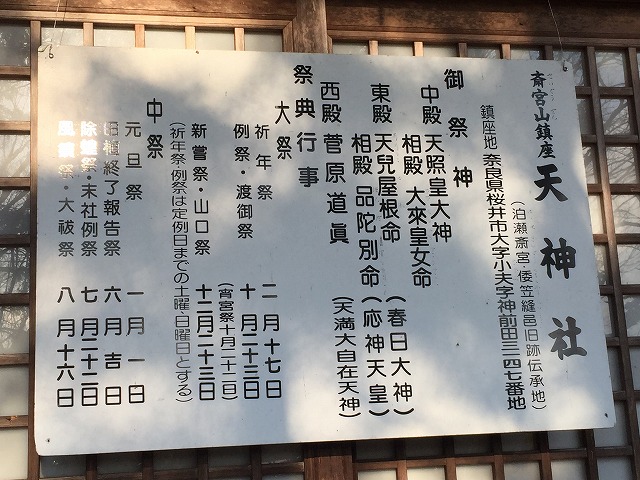 斎宮山鎮座 天神社
(泊瀬斎宮 倭笠縫邑旧跡伝承地)
鎮座地 奈良県桜井市大字小夫字神前田三一四七番地
御祭神
中殿 天照皇大神
相殿 大來皇女命
東殿 天兒屋根命 (春日大神)
相殿 品陀別命 (応神天皇)
西殿 菅原道眞 (天満大自在天神)
祭典行事
大祭
祈年祭 二月十七日
例祭・渡御祭 十月二十三日
(宵宮祭十月二十二日)
新嘗祭・山口祭 十二月二十三日
(祈年祭・例祭は定例日までの土曜、日曜日とする)
中祭
元旦祭 一月一日
田植終了報告祭 六月吉日
除蝗祭・末社例祭 七月二十二日
風鎮祭・大祓祭 八月十六日